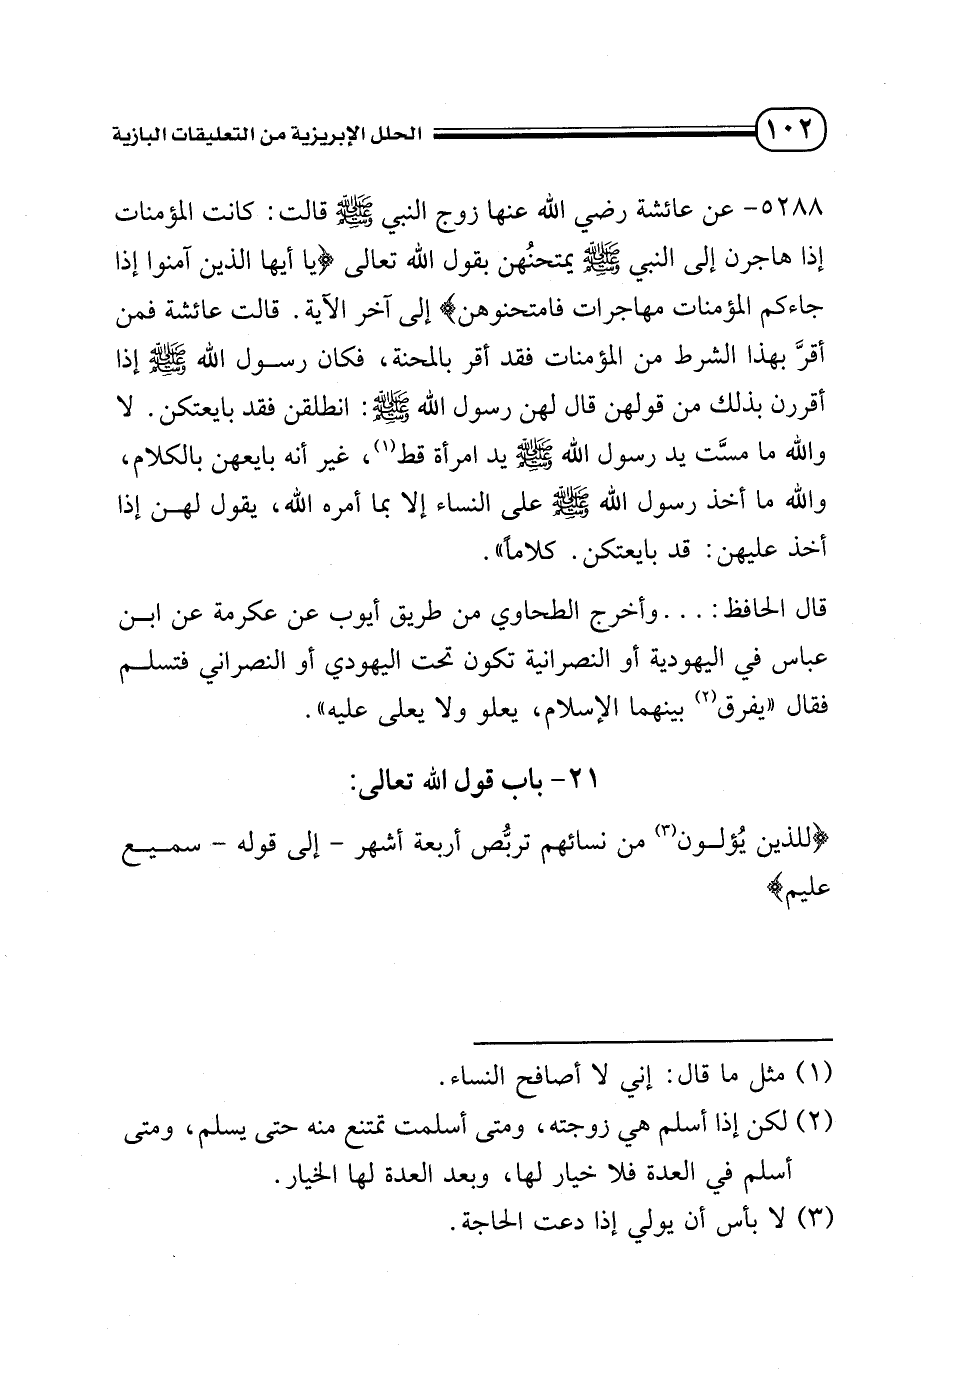 ١٠٢ الحلل الإبريزية من التعليقات البازية
٥٢٨٨- عن عائشة رضي الله عنها زوج النبي ﷺ قالت: كانت المؤمنات
إذا هاجرن إلى النبي ﷺ يمتحنُهن بقول الله تعالى ﴿يا أيها الذين آمنوا إذا
جاءكم المؤمنات مهاجرات فامتحنوهن﴾ إلى آخر الآية. قالت عائشة فمن
أقرَّ بهذا الشرط من المؤمنات فقد أقر بالمحنة، فكان رسول الله ﷺ إذا
أقررن بذلك من قولهن قال لهن رسول الله ﷺ: انطلقن فقد بايعتكن. لا
والله ما مسَّت يد رسول الله ﷺ يد امرأة قط(١)، غير أنه بايعهن بالكلام،
والله ما أخذ رسول الله ﷺ على النساء إلا بما أمره الله، يقول لهن إذا
أخذ عليهن: قد بايعتكن. كلاماً».
قال الحافظ: ... وأخرج الطحاوي من طريق أيوب عن عكرمة عن ابن
عباس في اليهودية أو النصرانية تكون تحت اليهودي أو النصراني فتسلم
فقال «يفرق(٢) بينهما الإسلام، يعلو ولا يعلى عليه».
٢١- باب قول الله تعالى:
﴿للذين يُؤلون(٣) من نسائهم تربُّص أربعة أشهر - إلى قوله - سميع
عليم﴾
(١) مثل ما قال: إني لا أصافح النساء.
(٢) لكن إذا أسلم هي زوجته، ومتى أسلمت تمتنع منه حتى يسلم، ومتى
أسلم في العدة فلا خيار لها، وبعد العدة لها الخيار.
(٣) لا بأس أن يولي إذا دعت الحاجة.